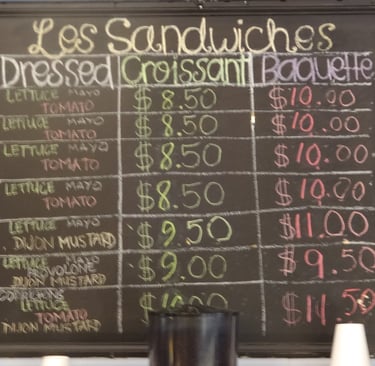 Les Sandwiches
Dressed Croissant Baguette
LETTUCE MAYO
TOMATO $8.50 $10.00
LETTUCE MAYO
TOMATO $8.50 $10.00
LETTUCE MAYO
TOMATO $8.50 $10.00
LETTUCE MAYO
TOMATO $8.50 $10.00
LETTUCE MAYO
DIJON MUSTARD $9.50 $11.00
LETTUCE MAYO
PROVOLONE
DIJON MUSTARD $9.00 $9.50
LETTUCE
TOMATO
DIJON MUSTARD $11.50